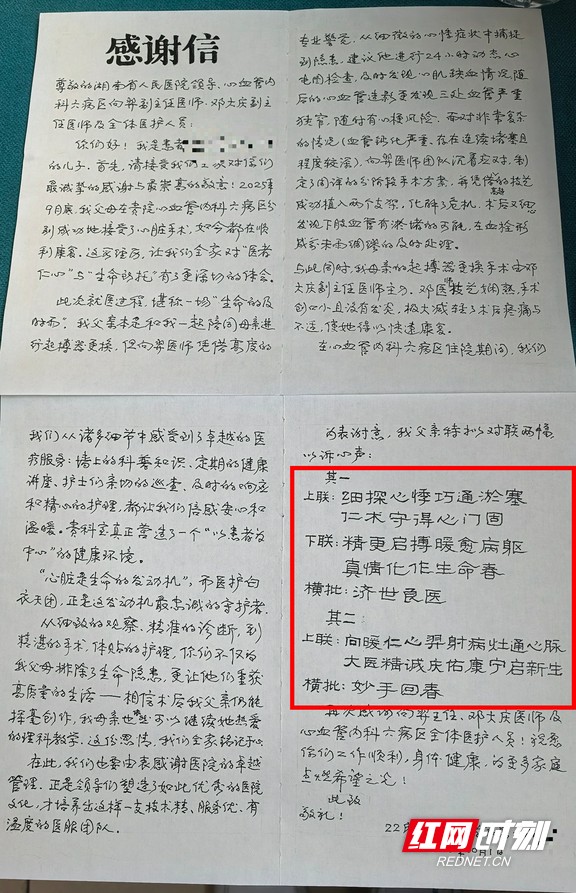 感谢信
尊敬的湖南省人民医院领导、心血管内
科六病区向羿副主任医师、邓大庆副主
任医师及全体医护人员:
你们好!我是患者
的儿子。首先,请接受我们 对你们
最诚挚的感谢与最崇高的敬意!2025年
9月底,我父母在贵院心血管内科六病区分
别成功地接受了心脏手术,如今都在顺
利康复。这次经历,让我们全家对“医者
仁心”与“生命所托”有了更深切的体会。
此次就医过程,堪称一场“生命的及
时雨”。我父亲本是和我一起陪同母亲进
行起搏器更换,但向羿医师凭借高度的
专业警觉,从细微的心悸症状中捕捉
到隐患,建议他进行24小时动态心
电图检查,及时发现心肌缺血情况,随
后的心血管造影更发现三处血管严重
狭窄,随时有心梗风险。面对非常复杂
的情况(血管钙化严重、存在连续堵塞且
程度较深),向羿医师团队沉着应对,制
定了周详的分阶段手术方案,并凭借高超的技艺
成功植入两个支架,化解了危机。术后又细心
发现下肢血管有淤堵的可能,在血栓形
成前未雨绸缪的及时处理。
与此同时,我母亲的起搏器更换手术由邓
大庆副主任医师主刀。邓医师技艺娴熟,手术
创口小且没有发炎,极大减轻了术后疼痛与
不适,使她得以快速康复。
在心血管内科六病区住院期间,我们
我们从诸多细节中感受到了卓越的医
疗服务:墙上的科普知识、定期的健康
讲座、护士们亲切的巡查、及时的响应
和精心的护理,都让我们倍感安心和
温暖。贵科室真正营造了一个“以患者为
中心”的健康环境。
“心脏是生命的发动机”,而医护白
衣天团,正是这发动机最忠诚的守护者。
从细致的观察、精准的诊断,到
精湛的手术、体贴的护理,你们不仅为
我父母排除了生命隐患,更让他们重获
高质量的生活——相信术后我父亲仍能
挥毫创作,我母亲也可以继续她热爱
的理科教学。这份恩情,我们全家铭记于心。
在此,我们也要由衷感谢医院的卓越
管理。正是领导们塑造了如此优秀的医院
文化,才培养出这样一支技术精、服务优、有
温度的医服团队。
为表谢意,我父亲特拟对联两幅,
以诉心声:
其一
上联:细探心悸巧通淤塞
仁术守得心门固
下联:精更启搏暖愈病躯
真情化作生命春
横批:济世良医
其二:
上联:向暖仁心羿射病灶通心脉
大医精诚庆佑康宁启新生
横批:妙手回春
再次感谢向羿主任、邓大庆医师及
心血管内科六病区全体医护人员!祝愿
你们工作顺利,身体健康,为更多家庭
点燃希望之光!
此致
敬礼!
22
红网时刻
REDNET.CN